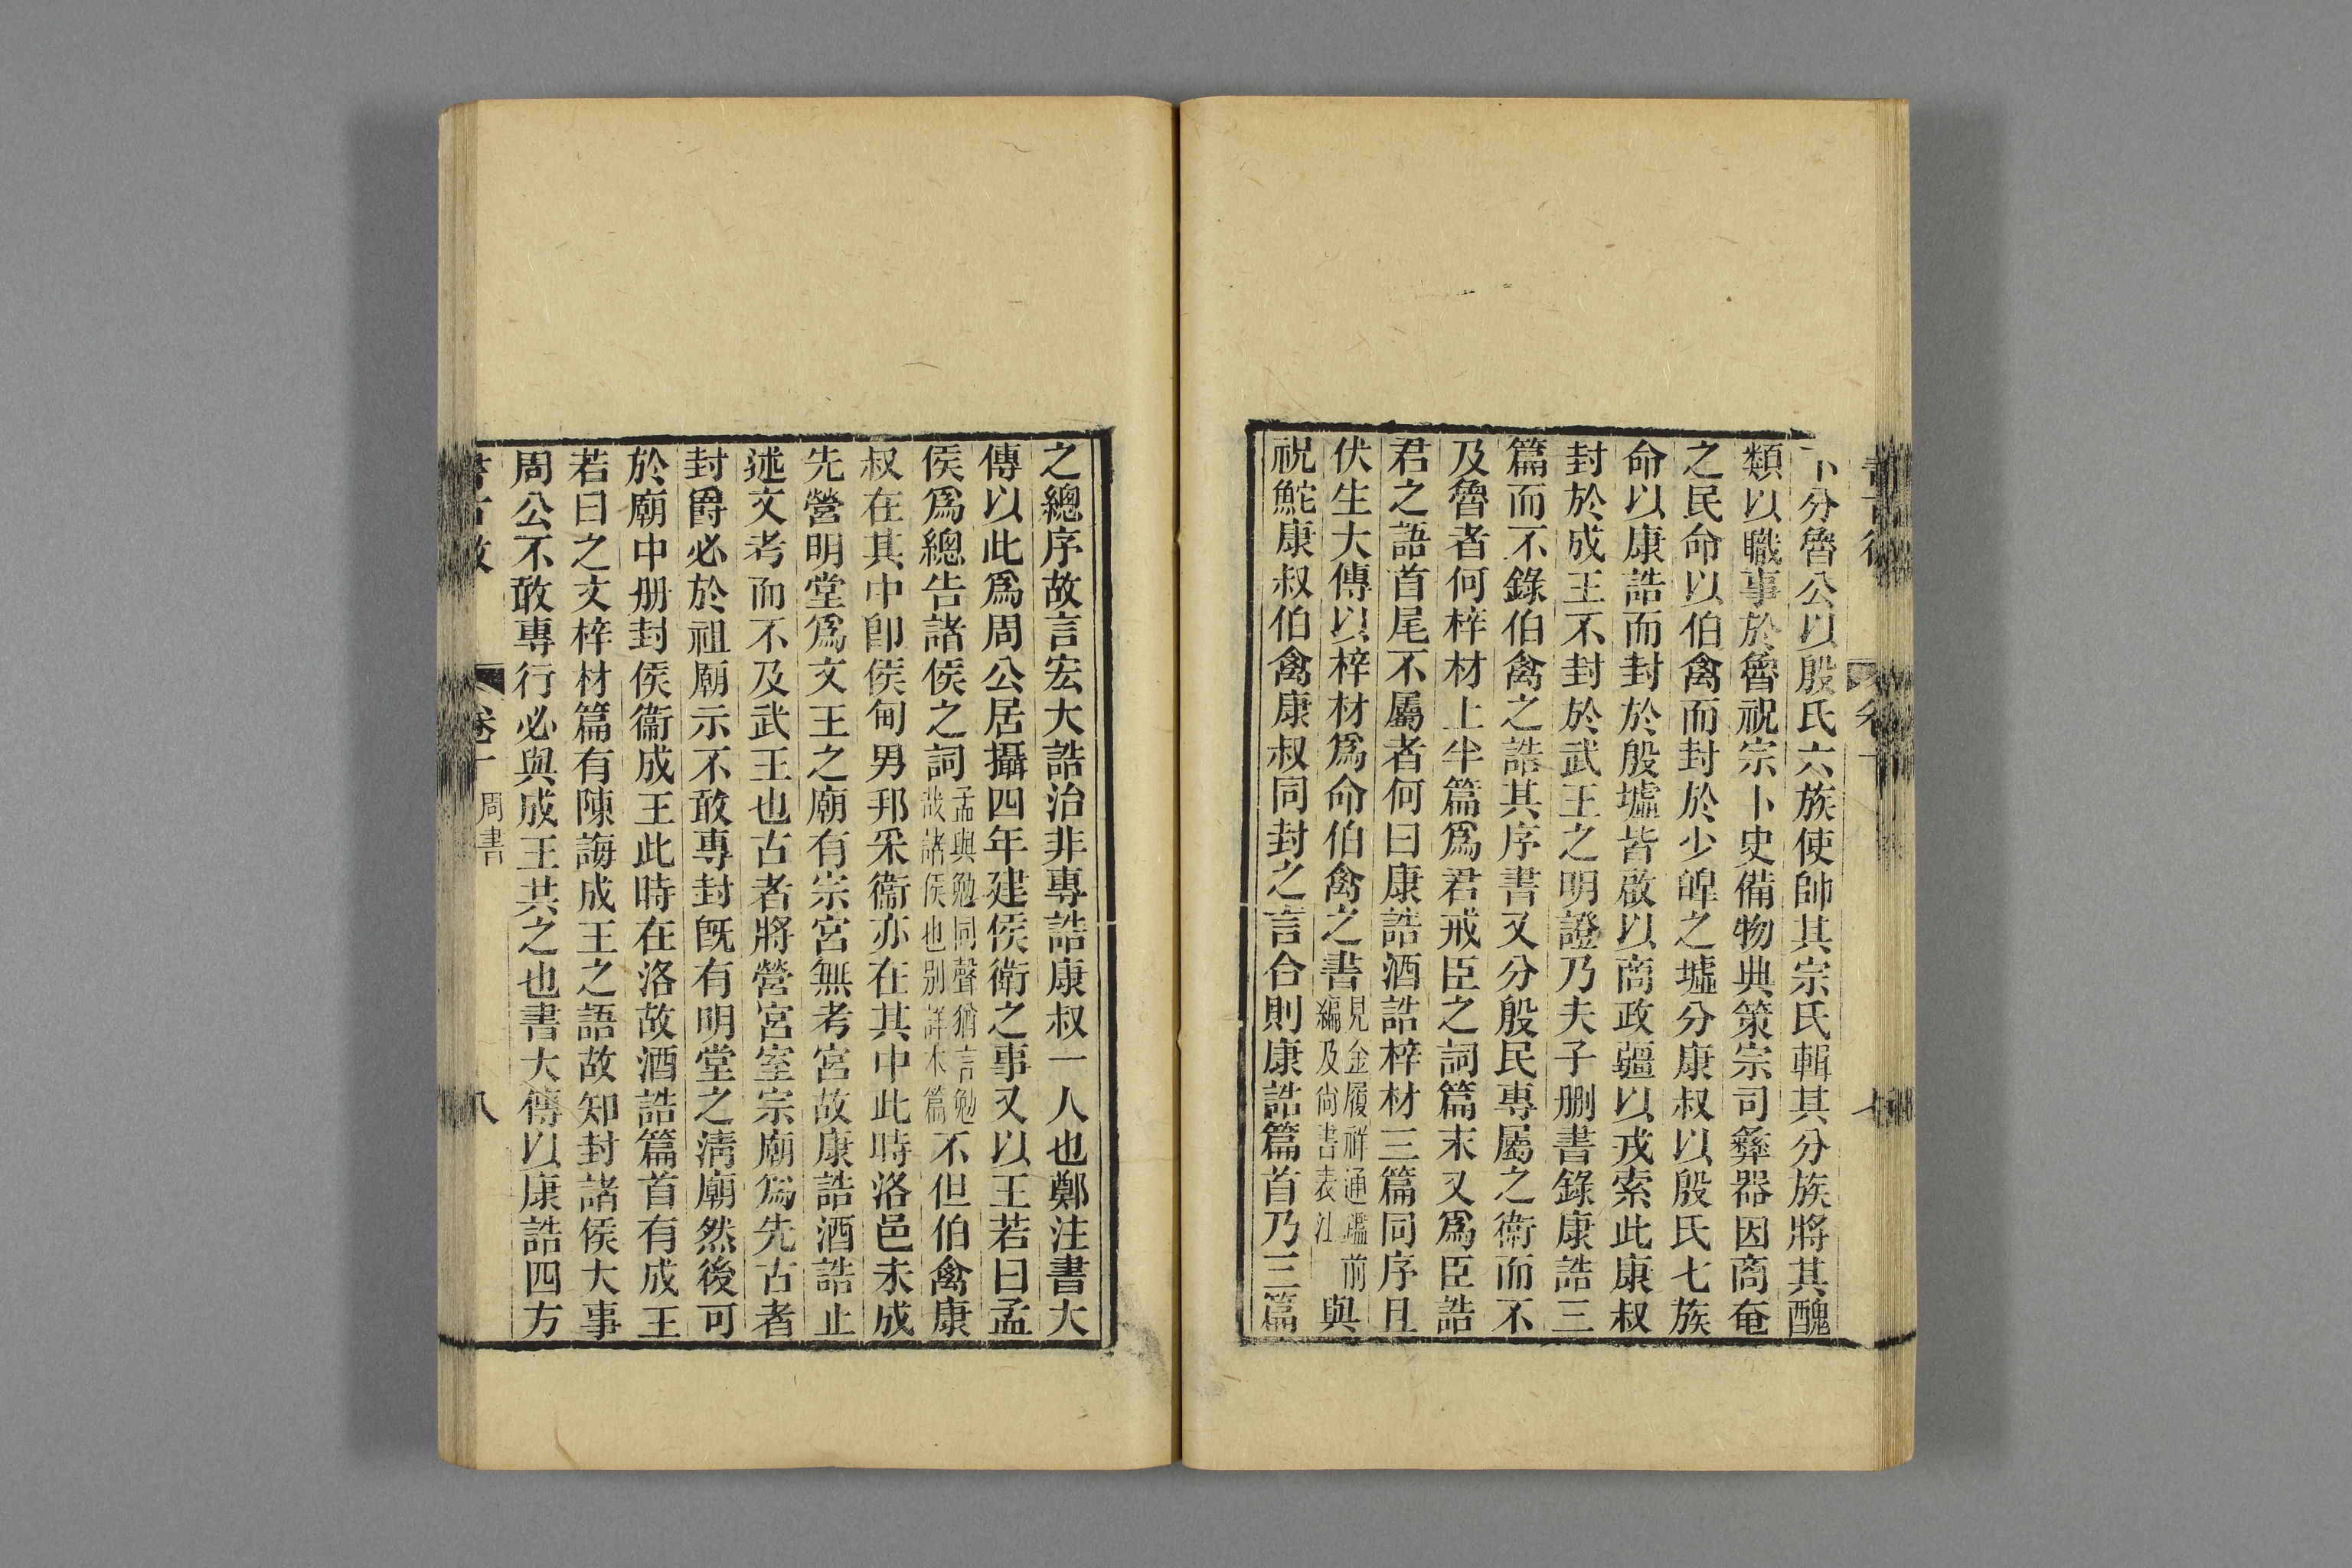 下分魯公以殷氏六族使帥其宗氏輯其分族將其醜
類以職事於魯祝宗卜史備物典策宗司彝器因商奄
之民命以伯禽而封於少皞之墟分康叔以殷氏七族
命以康誥而封於殷墟皆啟以商政疆以戎索此康叔
封於成王不封於武王之明證乃夫子刪書錄康誥三
篇而不錄伯禽之誥其序書又分殷民專屬之衛而不
及魯者何梓材上半篇爲君戒臣之詞篇末又爲臣誥
君之語首尾不屬者何曰康誥酒誥梓材三篇同序且
伏生大傳以梓材爲命伯禽之書見金履祥通鑑前編及尚書表注與
祝鮀康叔伯禽康叔同封之言合則康誥篇首乃三篇
之總序故言宏大誥治非專誥康叔一人也鄭注書大
傳以此爲周公居攝四年建侯衛之事又以王若曰孟
侯爲總告諸侯之詞孟與勉同聲猶言勉哉諸侯也別詳本篇不但伯禽康
叔在其中卽侯甸男邦采衞亦在其中此時洛邑未成
先營明堂爲文王之廟有宗宮無考宮故康誥酒誥止
述文考而不及武王也古者將營宮室宗廟爲先古者
封爵必於祖廟示不敢專封旣有明堂之淸廟然後可
於廟中册封侯衞成王此時在洛故酒誥篇首有成王
若曰之文梓材篇有陳誨成王之語故知封諸侯大事
周公不敢專行必與成王共之也書大傳以康誥四方
卷十 周書 八